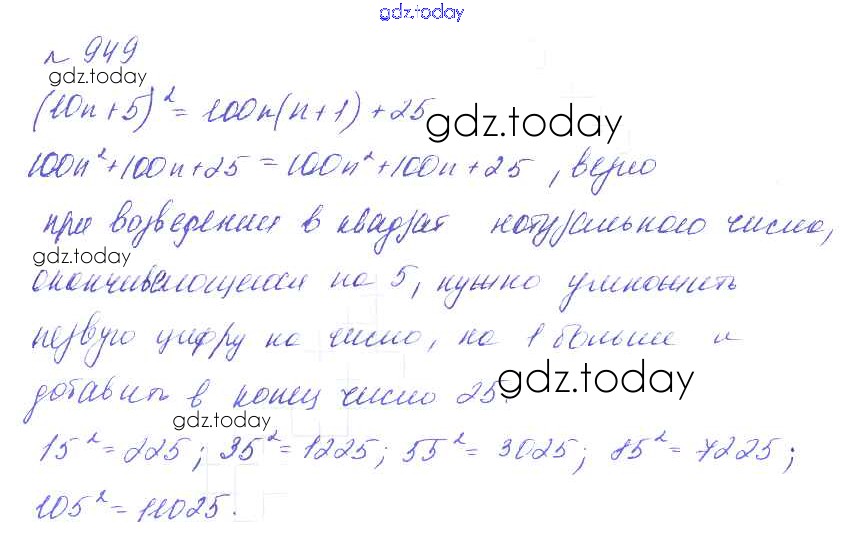 gdz.today
№ 949
gdz.today
(10n+5)² = 100n(n+1)+25
gdz.today
100n²+100n+25 = 100n²+100n+25, верно
при возведении в квадрат натурального числа,
gdz.today
оканчивающегося на 5, нужно умножить
первую цифру на число, на 1 больше и
gdz.today
добавить в конец число 25.
gdz.today
15² = 225; 35² = 1225; 55² = 3025; 85² = 7225;
105² = 11025.